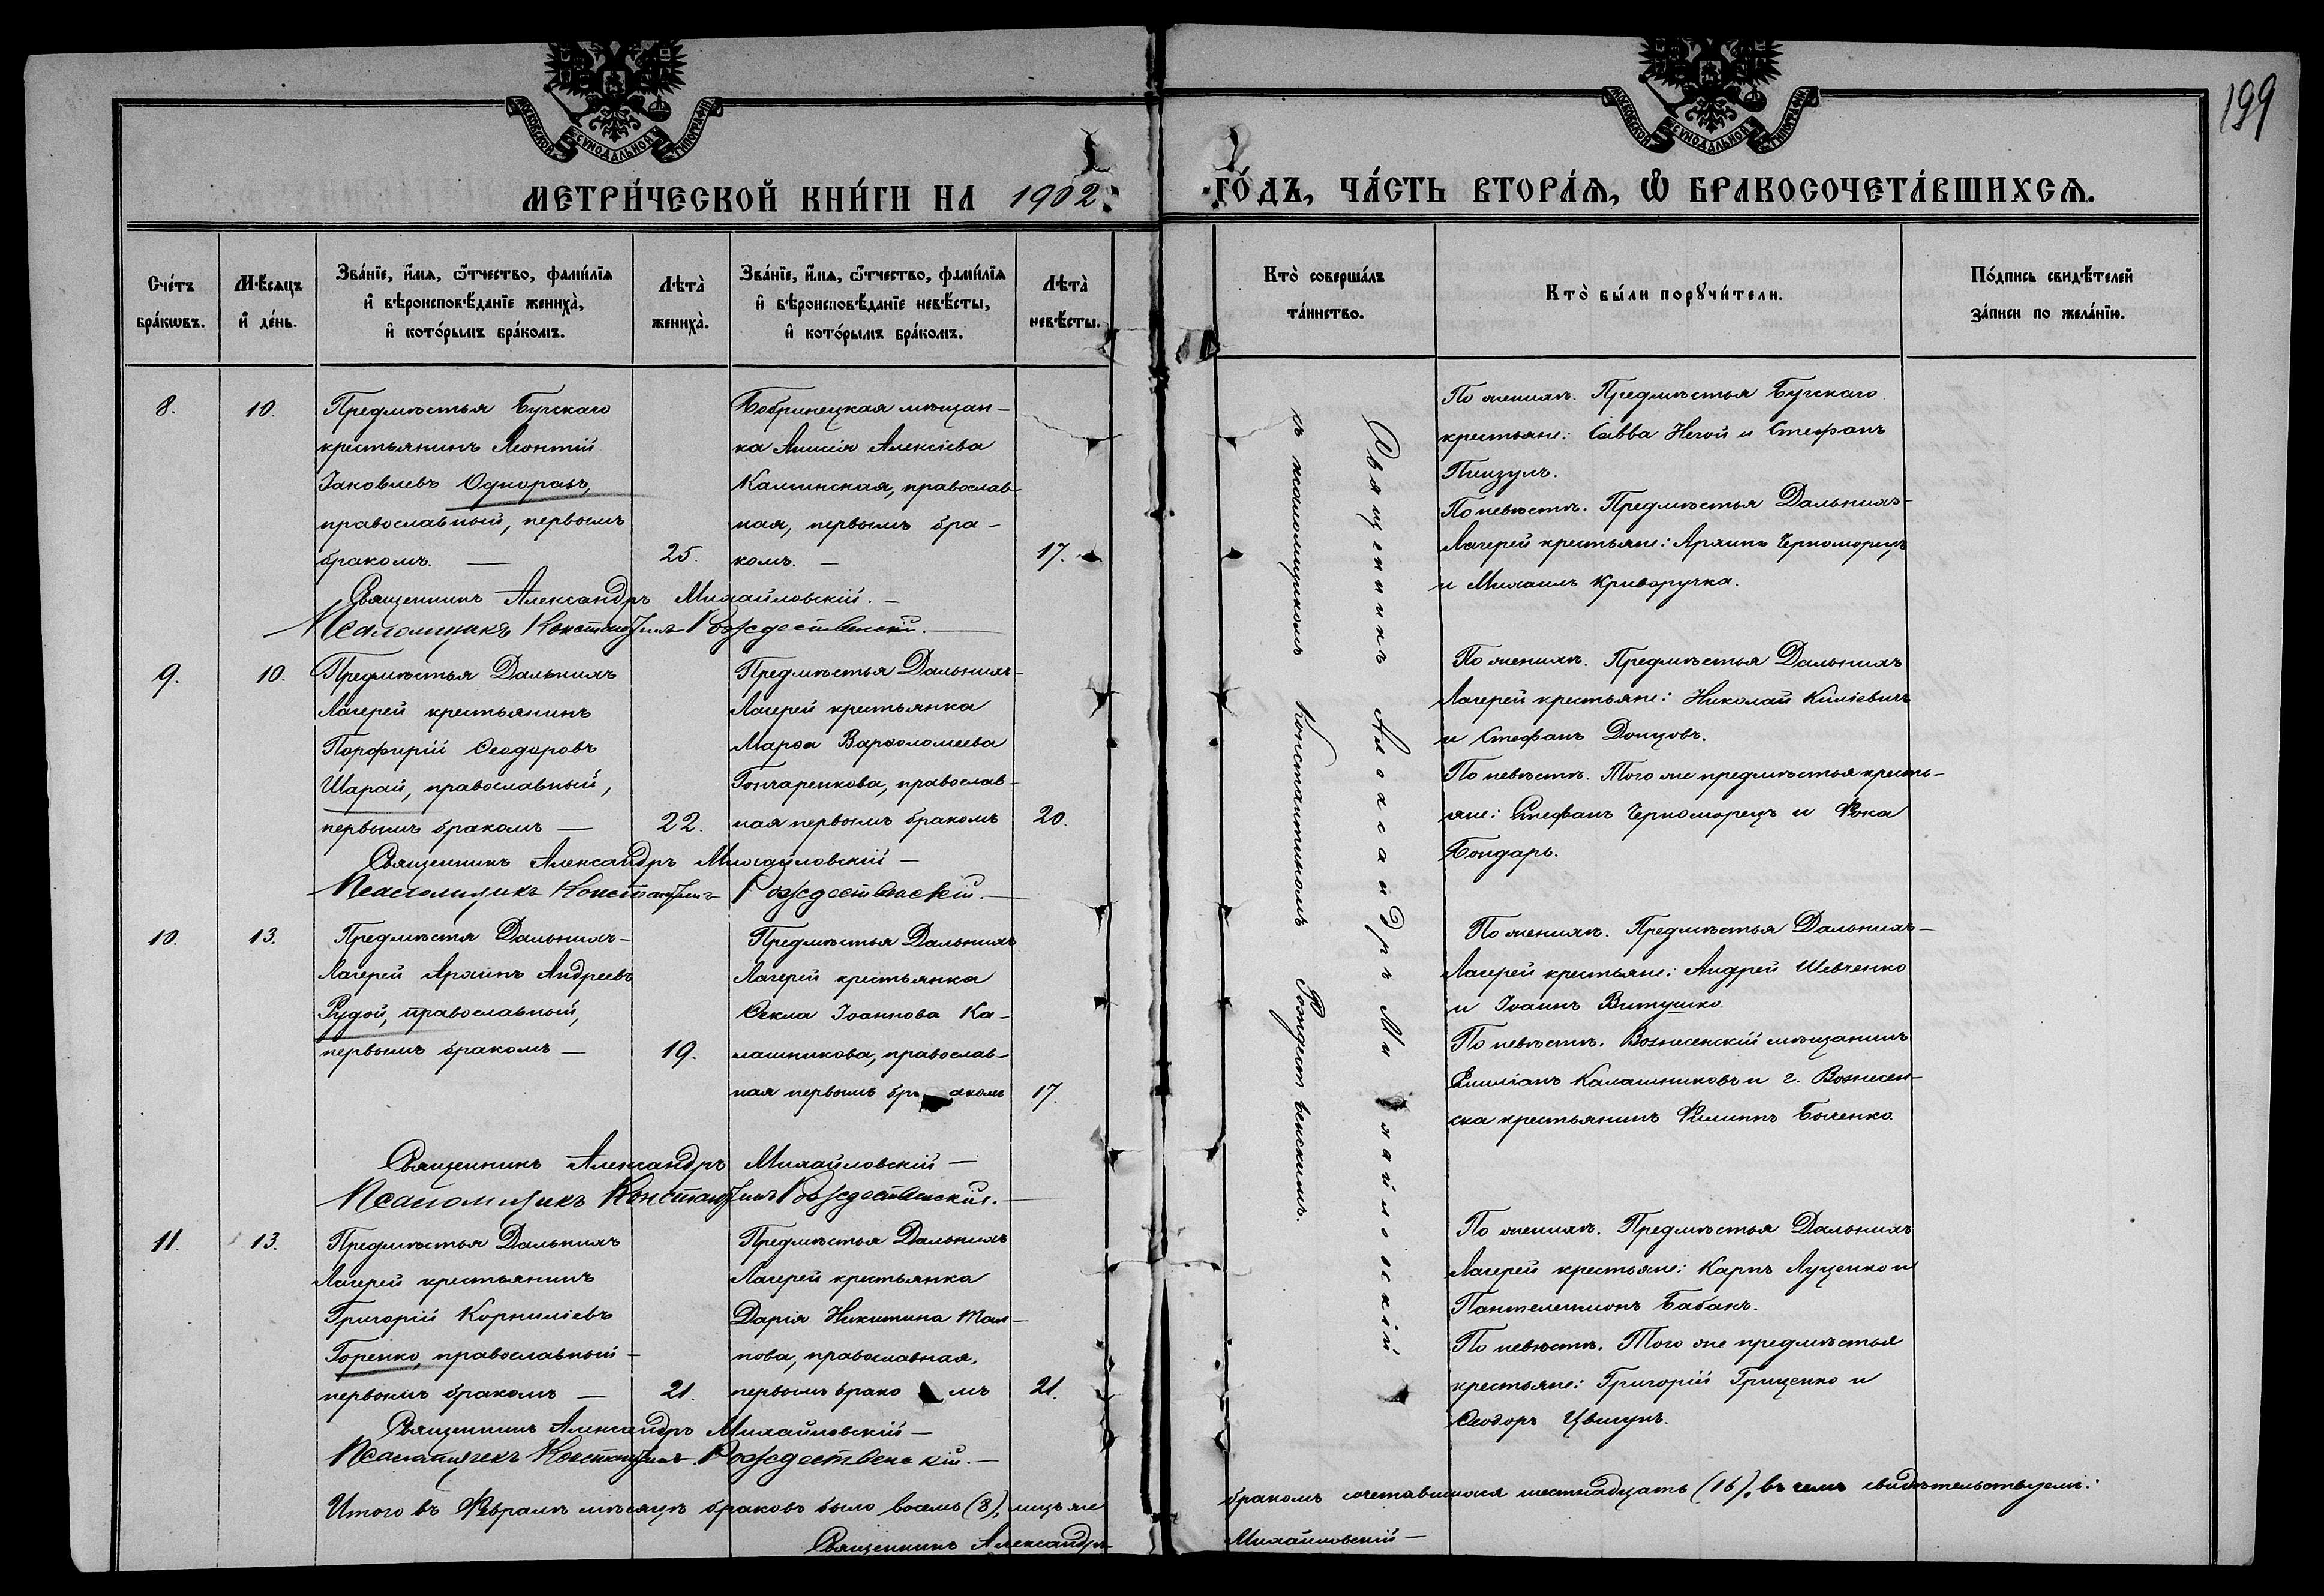 199
МОСКОВСКОЙ СУНОДАЛЬНОЙ ТИПОГРАФІИ
МОСКОВСКОЙ СУНОДАЛЬНОЙ ТИПОГРАФІИ
МЕТРИ́ЧЕСКОЙ КНИ́ГИ НА 1902 ГО́ДЪ, ЧА́СТЬ ВТОРА́Я, Ѡ БРАКОСОЧЕТА́ВШИХСЯ.
Сче́тъ бра́кѡвъ.
Мѣ́сяцъ и҆ де́нь.
Зва́нїе, и҆́мя, ѻ҆́тчество, фами́лїя
и҆ вѣроисповѣ́данїе жениха̀,
и҆ кото́рымъ бра́комъ.
Лѣта̀ жениха̀.
Зва́нїе, и҆́мя, ѻ҆́тчество, фами́лїя
и҆ вѣроисповѣ́данїе невѣ́сты,
и҆ кото́рымъ бра́комъ.
Лѣта̀ невѣ́сты.
Кто̀ соверша́лъ
та́инство.
Кто̀ бы́ли порꙋчи́тели.
По́дпись свидѣ́телей
за́писи по жела́нїю.
8.
10.
Предмѣстья Бугскаго
крестьянинъ Леонтій
Іаковлевъ Однорогъ,
православный, первымъ
бракомъ. —
25.
Бобринецкая мѣщан-
ка Анисія Алексіева
Калинская, православ-
ная, первымъ бра-
комъ. —
17.
Священникъ Александръ Михайловскій. —
Псаломщикъ Константинъ Рождественскій. —
По женихѣ. Предмѣстья Бугскаго
крестьяне: Савва Негой и Стефанъ
По невѣстѣ. Предмѣстья Дальнихъ-
Лагерей крестьяне: Архипъ Черноморецъ
и Михаилъ Криворучка.
9.
10.
Предмѣстья Дальнихъ
Лагерей крестьянинъ
Порфирій Ѳеодоровъ
Шарай, православный,
первымъ бракомъ —
22.
Предмѣстья Дальнихъ-
Лагерей крестьянка
Марѳа Варѳоломеева
Гончаренкова, православ-
ная первымъ бракомъ
20.
Священникъ Александръ Михайловскій —
Псаломщикъ Константинъ Рождественскій. —
По женихѣ. Предмѣстья Дальнихъ
Лагерей крестьяне: Николай Киліевичъ
и Стефанъ Донцовъ.
По невѣстѣ. Того же предмѣстья кресть-
яне: Стефанъ Черноморецъ и Фока
Бондарь.
10.
13.
Предмѣстя Дальнихъ-
Лагерей Архипъ Андреевъ
Рудой, православный,
первымъ бракомъ —
19.
Предмѣстья Дальнихъ
Лагерей крестьянка
Ѳекла Іоаннова Ка-
лашникова, православ-
ная первымъ бракомъ
17.
Священникъ Александръ Михайловскій —
Псаломщикъ Константинъ Рождественскій. —
По женихѣ. Предмѣстья Дальнихъ-
Лагерей крестьяне: Андрей Шевченко
и Іоаннъ Витушко.
По невѣстѣ. Вознесенскій мѣщанинъ
Емиліанъ Калашниковъ и г. Вознесен-
ска крестьянинъ Филиппъ Боженко.
11.
13.
Предмѣстья Дальнихъ
Лагерей крестьянинъ
Григорій Корниліевъ
Горенко, православный-
первымъ бракомъ —
21.
Предмѣстья Дальнихъ
Лагерей крестьянка
Дарія Никитина Тол-
пова, православная,
первымъ бракомъ
21.
Священникъ Александръ Михайловскій —
Псаломщикъ Константинъ Рождественскій. —
По женихѣ. Предмѣстья Дальнихъ
Лагерей крестьяне: Карпъ Луценко и
Пантелеимонъ Бабакъ.
По невѣстѣ. Того же предмѣстья
крестьяне: Григорій Гриценко и
Ѳеодоръ Цвигунъ.
Священникъ Александръ Михайловскій
съ псаломщикомъ Константиномъ Рождественскимъ.
Итого въ Февралѣ мѣсяцѣ браковъ было восемь (8), лицъ же бракомъ сочетавшихся шестнадцать (16), въ чемъ свидѣтельствуемъ:
Священникъ Александръ Михайловскій —